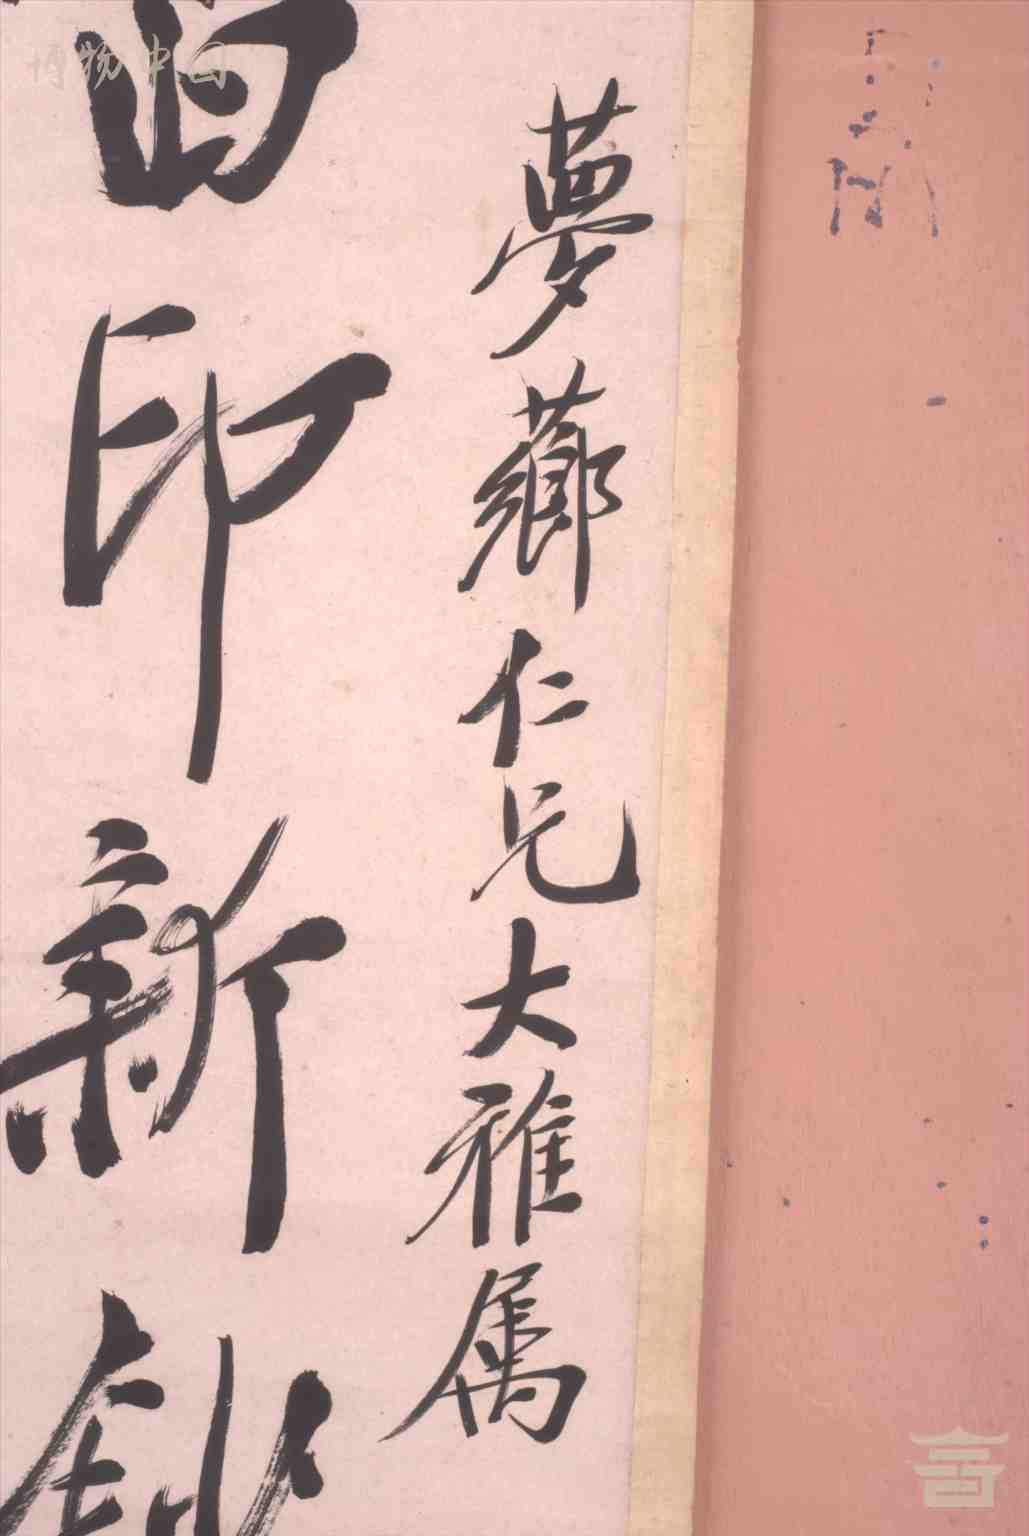 夢薌仁兄大雅属
印新
博物中国